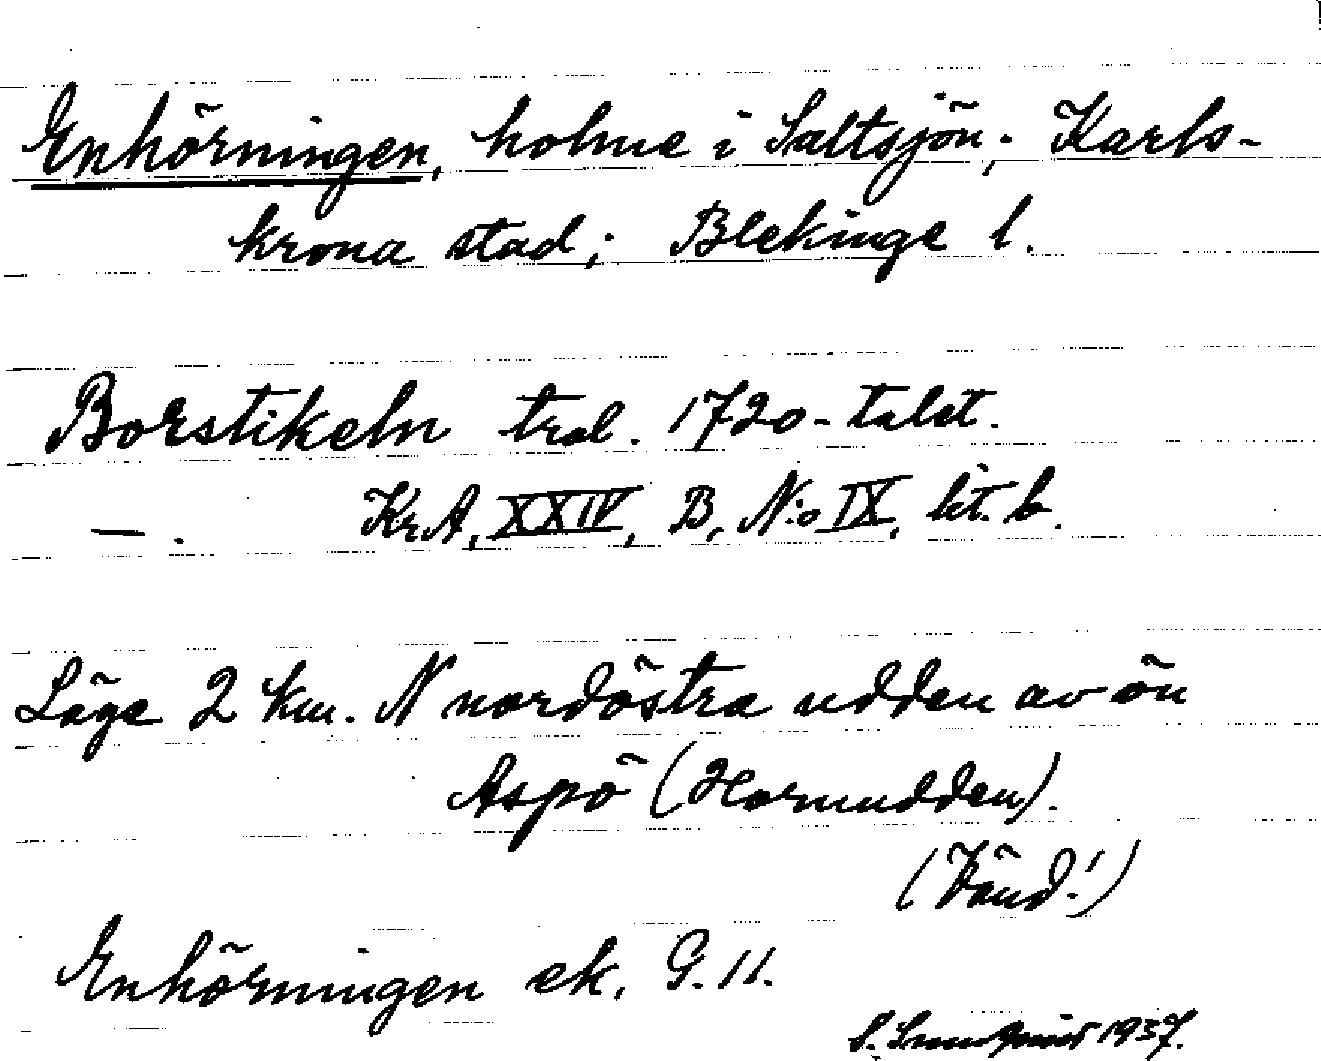 Enhörningen, holme i Saltsjön; Karls-
krona stad; Blekinge l.
Borstikeln tral. 1720-talet.
—. KrA, XXIV, B, N:o IX, lit. b.
Läge 2 km. N nordöstra udden av ön
Aspö (Hornudden).
(Vänd!)
Enhörningen ek. G. 11.
1937.